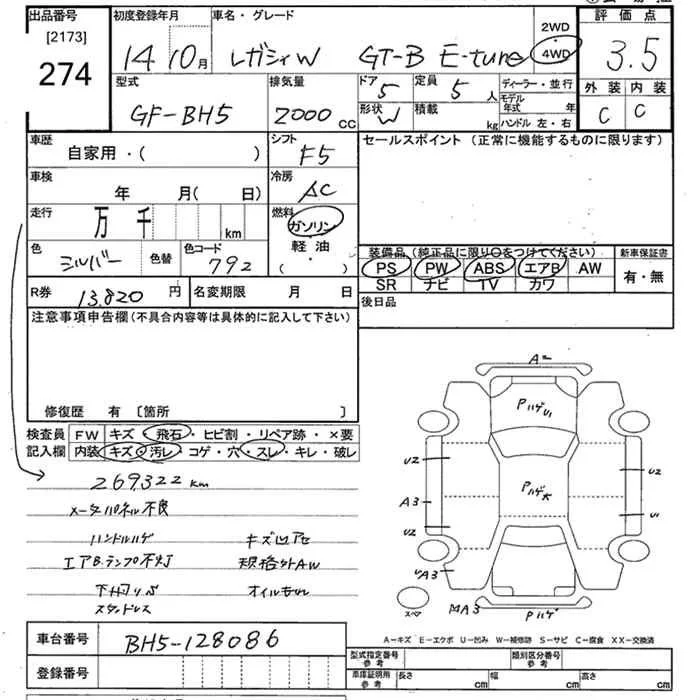 出品番号
[2173]
274
初度登録年月
14 10月
車名・グレード
レガシィW GT-B E-tune
2WD
4WD
評価点
3.5
外装 内装
C C
型式
GF-BH5
排気量
2000 cc
ドア 5
定員 5 人
形状 W
積載 kg
ディーラー・並行
モデル年式 年
ハンドル 左・右
車歴
自家用・( )
シフト
F5
セールスポイント (正常に機能するものに限ります)
車検
年 月( 日)
冷房
AC
走行
万 千 km
燃料
ガソリン
軽油
( ・ )
色
シルバー
色替
色コード
792
装備品(純正品に限り○をつけてください)
PS PW ABS エアB AW
SR ナビ TV カワ
新車保証書
有・無
R券 13,820 円
名変期限 月 日
後日品
注意事項申告欄(不具合内容等は具体的に記入して下さい)
修復歴 有 〔箇所 〕
検査員
記入欄
FW キズ・飛石・ヒビ割・リペア跡・×要
内装 キズ・汚レ・コゲ・穴・スレ・キレ・破レ
269322 km
メータパネル不良
ハンドルハゲ キズ凹アセ
エアB.ランプ不灯 規格外AW
下廻りサビ オイルもれ
スタッドレス
A2
PハゲU1
U2
U2
Pハゲ大
A3
U1
U2
UA3
スペア
MA3
Pハゲ
A-キズ E-エクボ U-凹み W-補修跡 S-サビ C-腐食 XX-交換済
車台番号 BH5-128086
登録番号
型式指定番号 参考
類別区分番号 参考
車庫証明用 参考
長さ cm
幅 cm
高さ cm